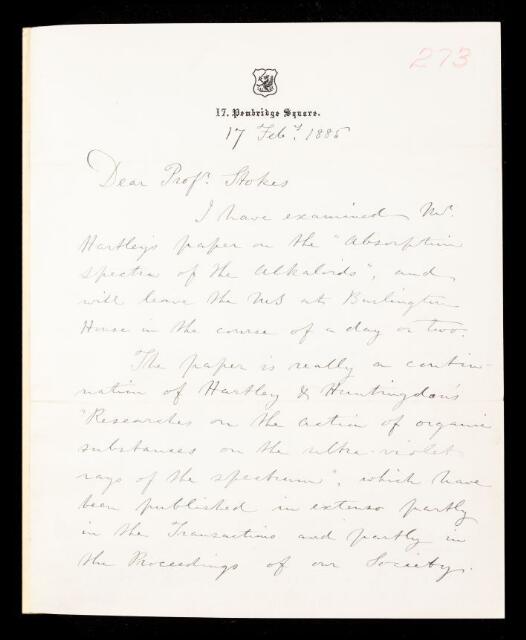 273
17, Pembridge Square.
17 Feby. 1885
Dear Profr. Stokes
I have examined Mr.
Hartley's paper on the "Absorption
spectra of the Alkaloids", and
will leave the MS at Burlington
House in the course of a day or two.
The paper is really a contin-
uation of Hartley & Huntingdon's
"Researches on the action of organic
substances on the ultra-violet
rays of the spectrum", which have
been published in extenso partly
in the Transactions and partly in
the Proceedings of our Society.